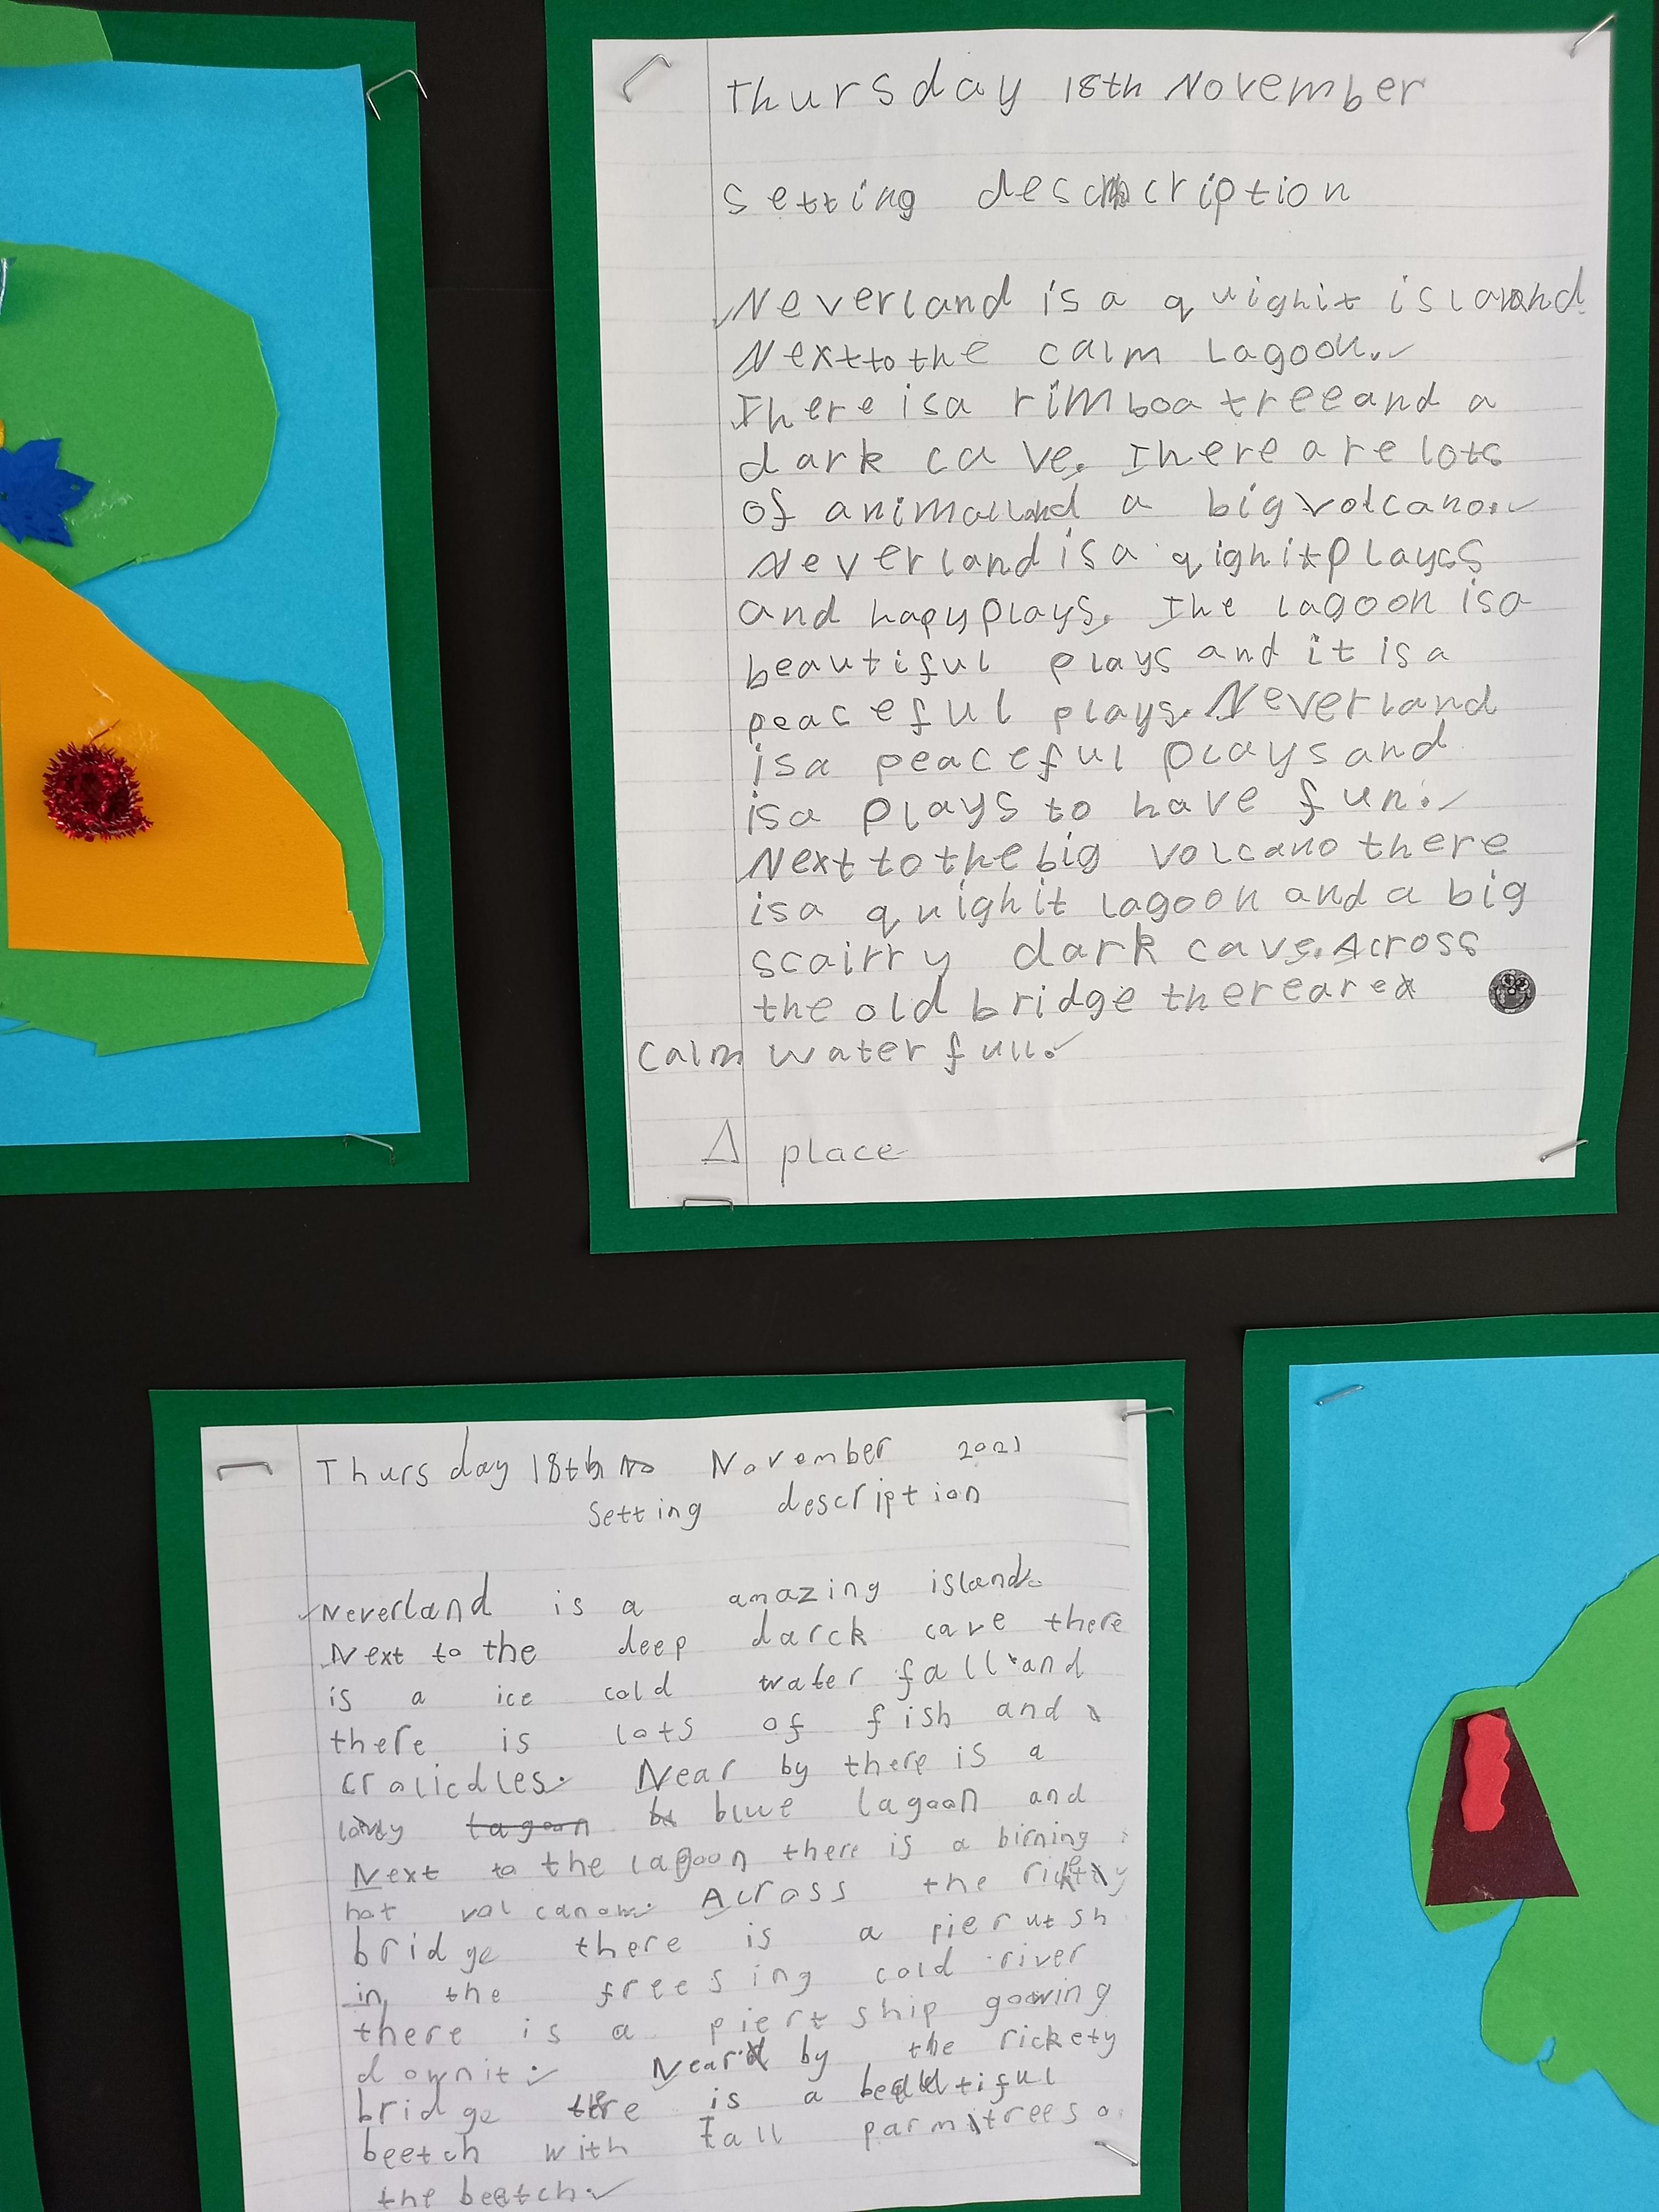 Thursday 18th November
setting description
Neverland is a quighit island
Next to the calm Lagoon.
There is a rimboa tree and a
dark cave. There are lots
of animal and a big volcano.
Neverland is a qighit playss
and hapy plays. The lagoon is a
beautiful plays and it is a
peaceful plays. Neverland
is a peaceful plays and
is a plays to have fun.
Next to the big volcano there
is a quighit lagoon and a big
scairry dark cave. Across
the old bridge there are a
calm water full.
place
Thursday 18th November 2021
Setting description
Neverland is a amazing island.
Next to the deep darck cave there
is a ice cold water fall and
there is lots of fish and
cralicdles. Near by there is a
blue lagoon and
Next to the lagoon there is a birning
hot Across the rickety
bridge there is a pierutsh
in the freesing cold river
there is a piert ship gowing
down it. Near by the rickety
bridge there is a beautiful
beetch with tall parm trees o
the beetch.